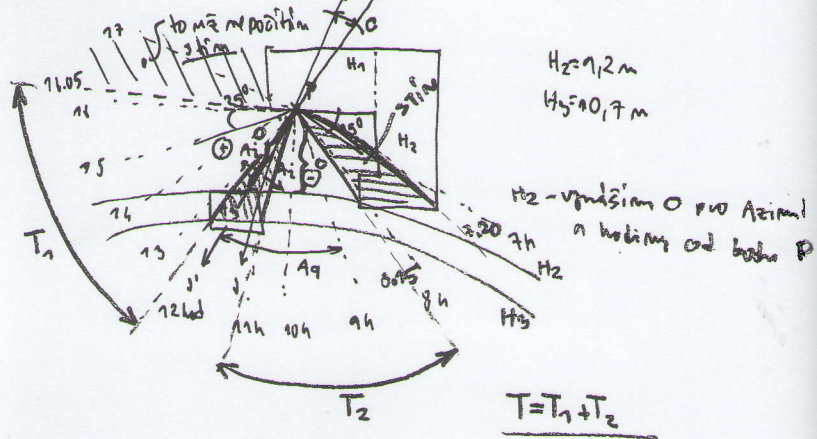 17
to mě nepočítám
stín
O
H1
H2=9,2 m
H3=10,7 m
16.05
16
25°
P
15°
stín
H2
15
O
+
Az
-
14
T1
13
12hod
Az
11h
10h
9h
8.15
8h
7.20
7h
H2
H3
H2 - vynáším O pro Azimut
a hodiny od bodu P
T2
T=T1+T2